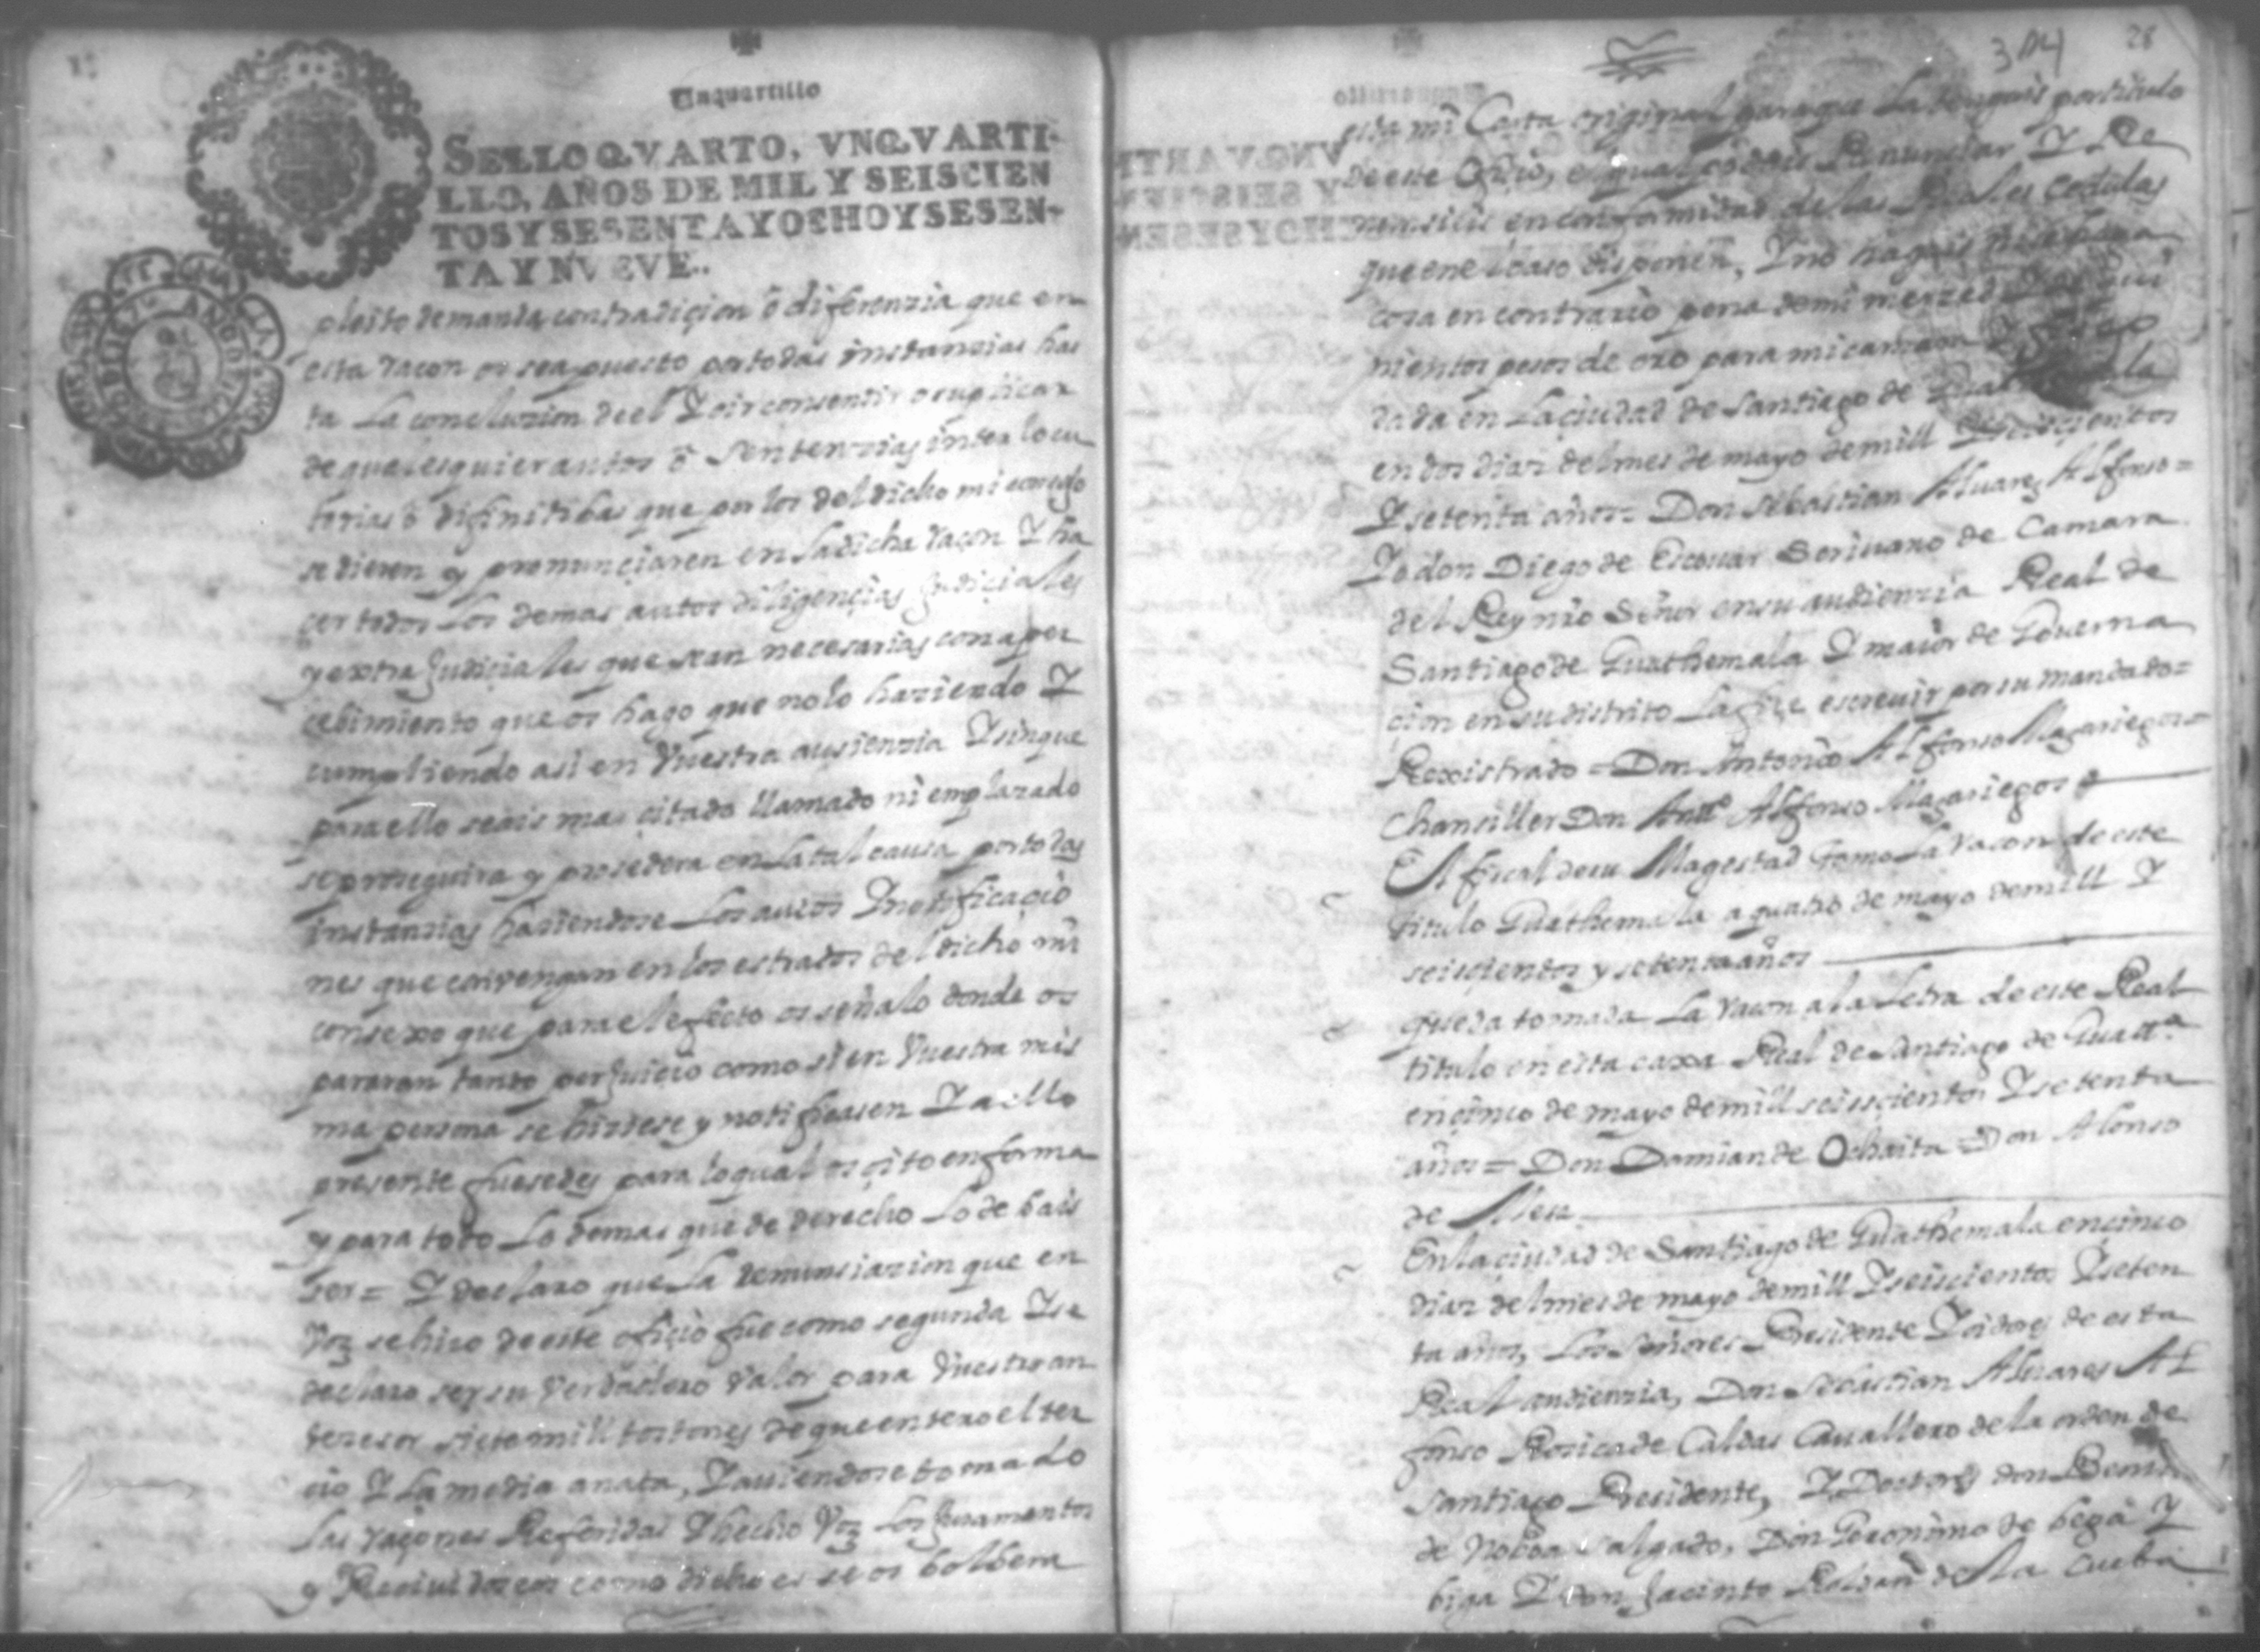 Vnquartillo
SELLO QVARTO, VNQVARTI-
LLO, AÑOS DE MIL Y SEISCIEN
TOS Y SESENTA Y OCHO Y SESEN-
TA Y NVEVE..
pleito demanda contradiçion ô diferenzia que en
esta raçon os sea puesto por todas instanzias has
ta La concluzion de el Y oir consentir o suplicar
de qualesquier autos ô sentenzias interlocu
torias ô difinitibas que por los del dicho mi consejo
se dieren y pronunçiaren en La dicha raçon Y ha
çer todos Los demas autos diligençias Judiçiales
y extraJudiçiales que sean necesarias con aper
cebimiento que os hago que no lo haziendo Y
cumpliendo asi en Vuestra ausienzia Y sin que
para ello seais mas çitado llamado ni emplazado
se proseguira y prosedera en La tal causa por todas
instanzias haziendose Los autos Y notificaçio
nes que convengan en los estrados del dicho mi
consexo que para el efecto os señalo donde os
pararan tanto perJuiçio como si en Vuestra mis
ma persona se hiziese y notificasen Y a ello
presente fuesedes para lo qual os çito en forma
y para todo Lo demas que de derecho Lo debais
ser = Y declaro que La renunsiazion que en
Voz se hizo de este ofiçio fue como segunda Y se
declaro ser su Verdadero Valor para Vuestro an
tezesor siete mill tostones de que entero el ter
cio Y La media anata, Y auiendose tomado
Las raçones Referidas Y hecho Voz Los Juramentos
y Reciuidoos como dicho es se os bolbera
314 28
esta mi Carta original para que La tengais por titulo
de este ofiçio, el qual podais Renunciar Y Re
en conformidad de las Reales cedulas
que en el caso disponen, Y no hagais
cosa en contrario pena de mi merzed Y de qui
nientos pesos de oro para mi camara
dada en La çiudad de Santiago de
en dos dias del mes de mayo de mill Y seiscientos
Y setenta años = Don Sebastian Aluarez Alfonso =
Yo don Diego de Escouar Scriuano de Camara
del Rey nro Señor en su audienzia Real de
Santiago de Guathemala Y maior de Gouerna
çion en su distrito La fize escreuir por su mandado =
Rexistrado = Don Antonio Alfonso Mazariegos =
Chansiller Don Antto Alfonso Mazariegos =
El fiscal de su Magestad tomo La raçon de este
titulo Guathemala a quatro de mayo de mill Y
seiscientos y setenta años
Queda tomada La raçon a la Letra de este Real
titulo en esta caxa Real de Santiago de Guatta
en çinco de mayo de mill seiscientos Y setenta
años = Don Damian de Ochaita = Don Alonso
de
En la çiudad de Santiago de Guathemala en çinco
dias del mes de mayo de mill Y seiscientos Y seten
ta años, Los Señores Presidente Y oidores de esta
Real audienzia, Don Sebastian Aluares Al
fonso Rosica de Caldas Cauallero de la orden de
Santiago Presidente, Y Dotores don Benito
de Noboa Salgado, Don Geronimo de bega Y
biga Y don Jacinto Roldan de La Cueba